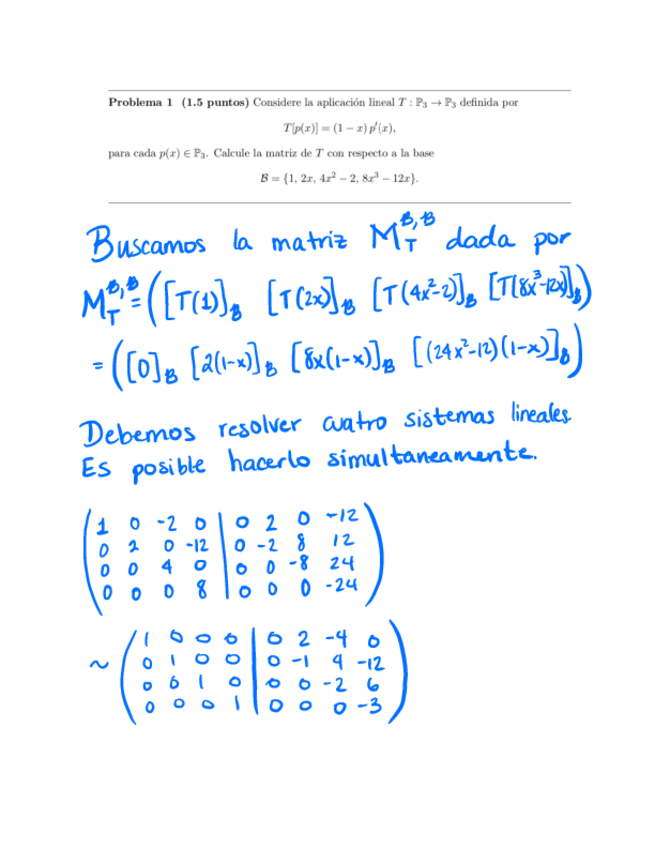 Problema 1 (1.5 puntos) Considere la aplicación lineal T : ℙ₃ → ℙ₃ definida por
T[p(x)] = (1 − x) p′(x),
para cada p(x) ∈ ℙ₃. Calcule la matriz de T con respecto a la base
ℬ = {1, 2x, 4x² − 2, 8x³ − 12x}.
Buscamos la matriz M_T^{B,B} dada por
M_T^{B,B} = ([T(1)]_B [T(2x)]_B [T(4x²-2)]_B [T(8x³-12x)]_B)
= ([0]_B [2(1-x)]_B [8x(1-x)]_B [(24x²-12)(1-x)]_B)
Debemos resolver cuatro sistemas lineales.
Es posible hacerlo simultaneamente.
1 0 -2 0 | 0 2 0 -12
0 2 0 -12 | 0 -2 8 12
0 0 4 0 | 0 0 -8 24
0 0 0 8 | 0 0 0 -24
~ 1 0 0 0 | 0 2 -4 0
0 1 0 0 | 0 -1 4 -12
0 0 1 0 | 0 0 -2 6
0 0 0 1 | 0 0 0 -3